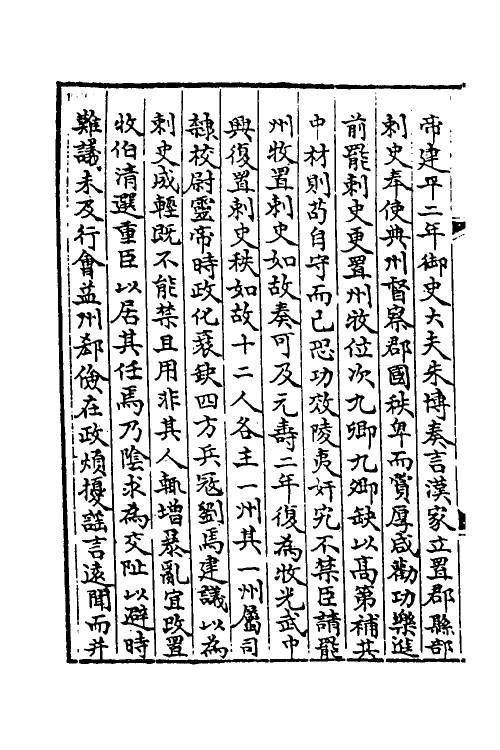 帝建平二年御史大夫朱博奏言漢家立置郡縣部
刺史奉使典州督察郡國秩卑而賞厚咸勸功樂進
前罷刺史更置州牧位次九卿九卿缺以髙第補其
中材則苟自守而已恐功效陵夷奸宄不禁臣請罷
州牧置刺史如故奏可及元壽二年復為牧光武中
興復置刺史秩如故十二人各主一州其一州屬司
隸校尉靈帝時政化衰缺四方兵冦劉焉建議以為
刺史威輕既不能禁且用非其人輙增暴亂宜改置
牧伯清選重臣以居其任焉乃陰求為交阯以避時
難議未及行會益州郄儉在政煩擾謡言逺聞而并